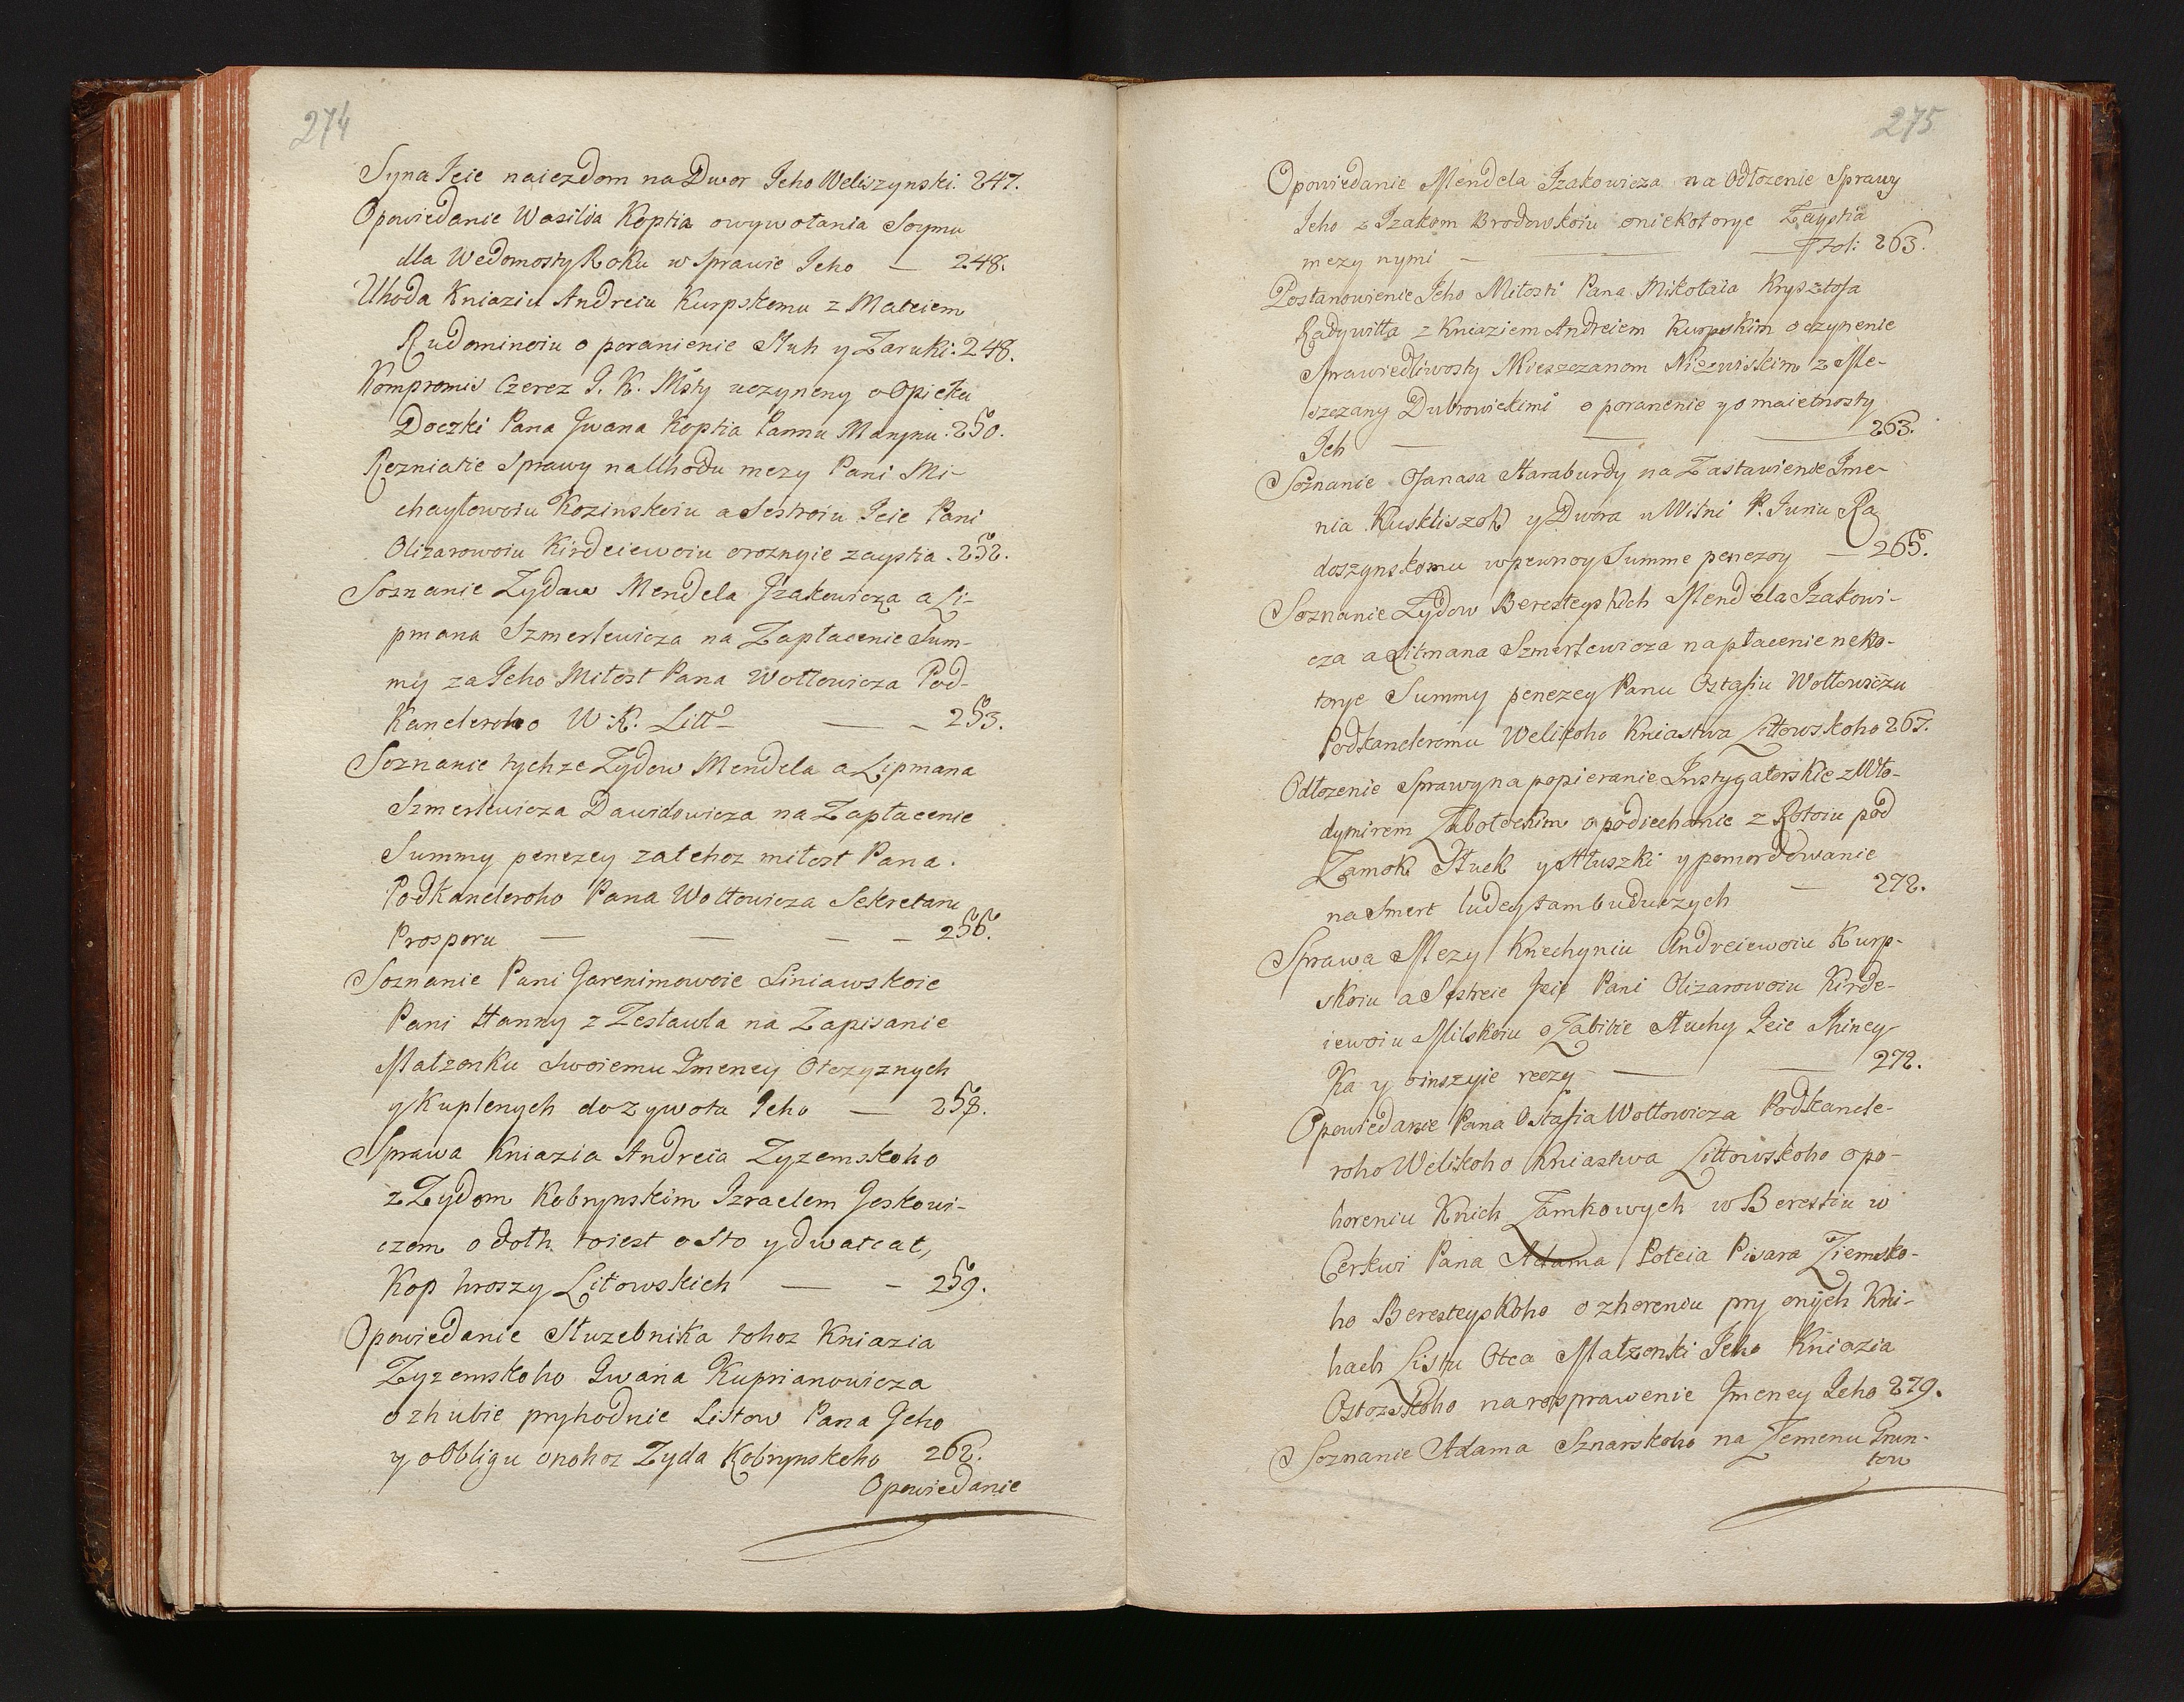 274
Syna Jeie naiezdom na Dwor Jeho Weliszynski. 247.
Opowiedanie Wasilia Koptia o wywołania Soymu
dla Wedomosty Roku w Sprawie Jeho — 248.
Uhoda Kniaziu Andreiu Kurpskomu z Mateiem
Rudominoiu o poranienie Sluh y Zaruki: 248.
Kompromis Czerez J. K. Msty uczyneny o Opieku
Doczki Pana Jwana Koptia Pannu Marynu. 250.
Rozniatie Sprawy na Uhodu mezy Pani Mi-
chayłowoiu Kozinskoiu a Sestroiu Jeie Pani
Olizarowoiu Kirdeiewoiu o roznyie zaystia. 252.
Soznanie Zydow Mendela Jzakowicza a Li-
pmana Szmerlewicza na Zapłacenie Sum-
my za Jeho Miłost Pana Wołłowicza Pod-
Kancleroho W. K. Litt° — — 253.
Soznanie tychze Zydow Mendela a Lipmana
Szmerlewicza Dawidowicza na Zapłacenie
Summy penezey za tehoz miłost Pana
Podkancleroho Pana Wołłowicza Sekretaru
Prosporu — — — — 256.
Soznanie Pani Jaronimowoie Siniawskoie
Pani Hanny z Zesławla na Zapisanie
Małzonku Swoiemu Jmeney Otczyznych
y Kuplenych do zywota Jeho — 258.
Sprawa Kniazia Andreia Zyzemskoho
z Zydom Kobrynskim Izraelem Jeskowi-
czem o dołh toiest o Sto y dwatcat,
Kop hroszy Litowskich — — 259.
Opowiedanie Sluzebnika tohoz Kniazia
Zyzemskoho Jwana Kuprianowicza
o zhubie pryhodnie Listow Pana Jeho
y obbligu onohoz Zyda Kobrynskoho 262.
Opowiedanie
275
Opowiedanie Mendela Jzakowicza na Odłozenie Sprawy
Jeho z Jzakom Brodowskoiu o niekotorye Zaystia
mezy nymi — — — fol: 263.
Postanowienie Jeho Miłosti Pana Mikołaia Krysztofa
Radywiłła z Kniaziem Andreiem Kurpskim o czynenie
Sprawiedliwosty Mieszczanom Niezwiskim z Me-
szczany Dubrowickimi o poranenie y o maietnosty
Jch — — — 263.
Soznanie Ofanasa Haraburdy na Zastawienie Jme-
nia Kuskliszok y Dwora u Wilni P. Juriu Ra
doszynskomu w pewnoy Summe penezoy — 265.
Soznanie Zydow Beresteyskich Mendela Jzakowi-
cza a Litmana Szmerlewicza na płacenie neko-
torye Summy penezey Panu Ostafiu Wołłowiczu
Podkancleromu Welikoho Kniastwa Littowskoho 267.
Odłozenie Sprawy na popieranie Instygatorskie z Wło-
dymirem Zabołockim o podiechanie z Rotoiu pod
Zamok Słuck y Hłuszki y pomordowanie
na Smert ludey tam buduczych — 272.
Sprawa Mezy Kniehyniu Andreiewoiu Kurp-
skoiu a Sestreie Jeie Pani Olizarowoiu Kirde-
iewoiu Milskoiu o Zabitie Sluhy Jeie Miney
Ka y o inszyie reczy — — 272.
Opowiedanie Pana Ostafia Wołłowicza Podkancle-
roho Welikoho Kniastwa Littowskoho o po-
horeniu Knich Zamkowych w Berestiu w
Cerkwi Pana Adama Poteia Pisara Ziemsko-
ho Beresteyskoho o zhoreniu pry onych Kni-
hach Listu Otca Małzonki Jeho Kniazia
Ostozskoho na rosprawenie Jmeney Jeho 279.
Soznanie Adama Sznarskoho na Zemenu Grun-
tow